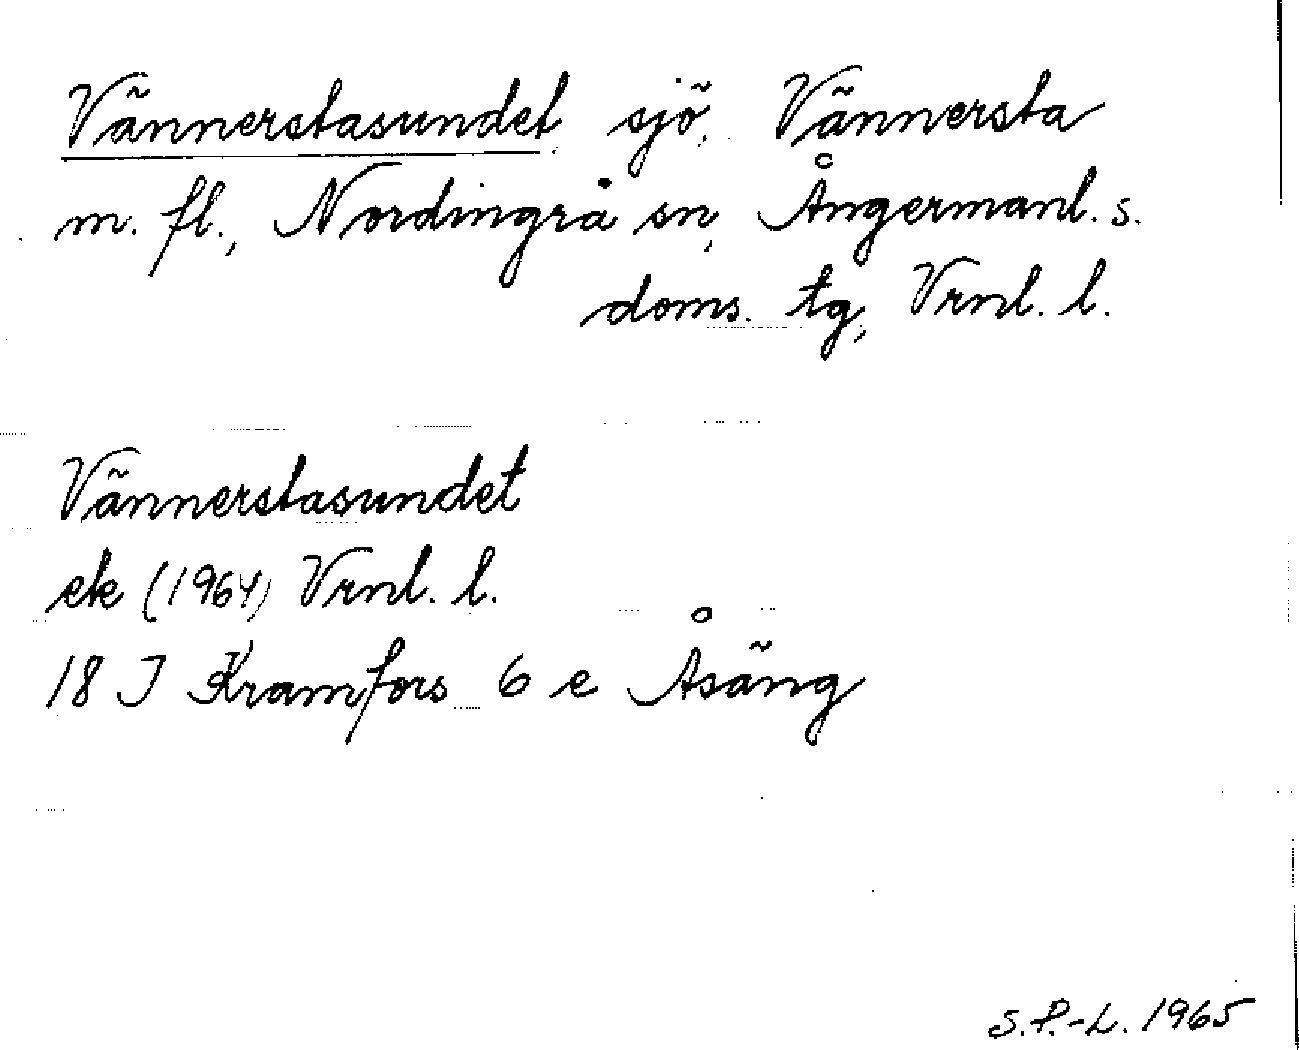 Vännerstasundet sjö, Vännersta
m. fl., Nordingrå sn, Ångermanl. s.
doms. tg, Vrnl. l.
Vännerstasundet
ek (1964) Vrnl. l.
18 J Kramfors 6 e Åsäng
S.P.-L. 1965